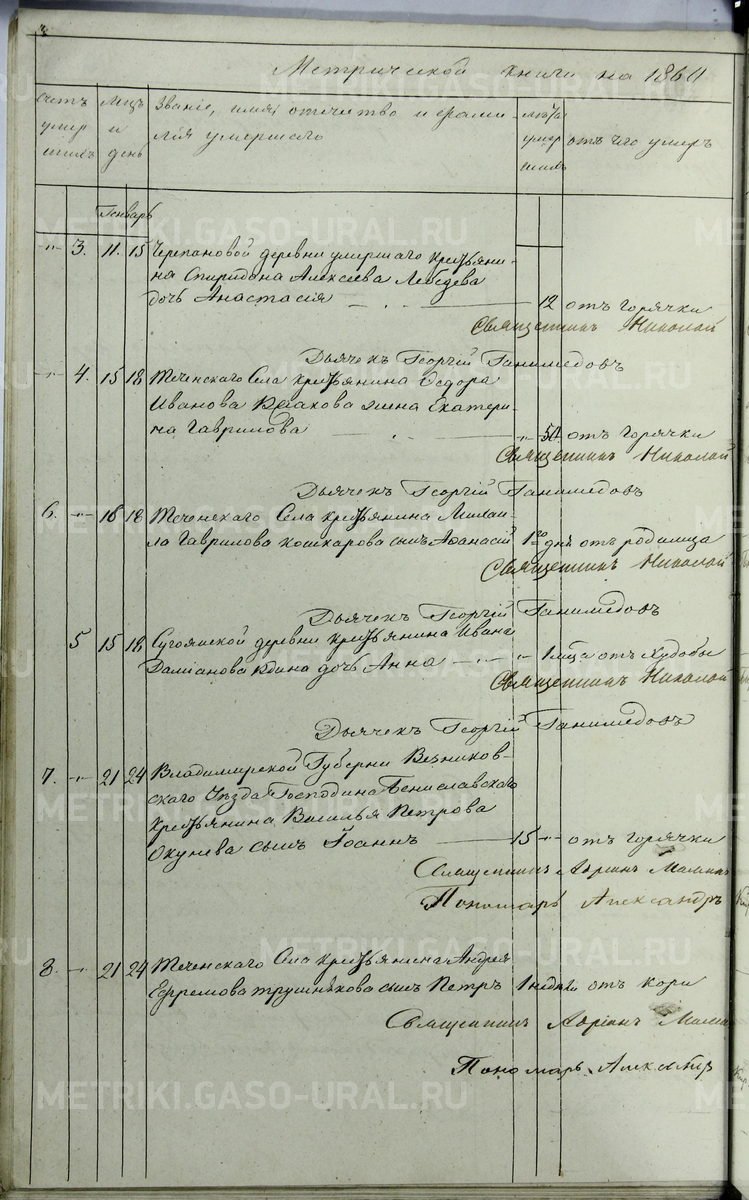 Метрической книги на 1860
счетъ умер шихъ
мѣцъ и день
Званіе, имя, отчество и фами
лія умершаго
лѣта умер шихъ
отъ чего умеръ
Генварь
3. 11. 15 Черепановой деревни умершаго крестьяни-
на Спиридона Алексѣева Лебедева
дочь Анастасія 12 отъ горячки
Священникъ Николай
Дьячекъ Георгій Ганимедовъ
4. 15 18 Теченскаго Села крестьянина Ѳедора
Иванова жена Екатери-
на Гаврилова 54 отъ горячки
Священникъ Николай
Дьячекъ Георгій Ганимедовъ
6. 16 18 Теченскаго Села крестьянина Михаи-
ла Гаврилова Кошкарова сынъ Аѳанасій 1 дня отъ родимца
Священникъ Николай
Дьячекъ Георгій Ганимедовъ
5 15 18 Сугоякской деревни крестьянина Ивана
Даміанова дочь Анна 1 мѣца отъ худобы
Священникъ Николай
Дьячекъ Георгій Ганимедовъ
7. 21 24 Владимирской Губерни Везников-
скаго Уѣзда Господина Бениславскаго
крестьянина Василья Петрова
Окунева сынъ Іоаннъ 15 отъ горячки
Священникъ Адріанъ
Пономарь Александръ
8. 21 24 Теченскаго Села крестьянина Андрея
Ефремова сынъ Петръ 1 недѣли отъ кори
Священникъ Адріанъ
Пономарь Александръ
METRIKI.GASO-URAL.RU